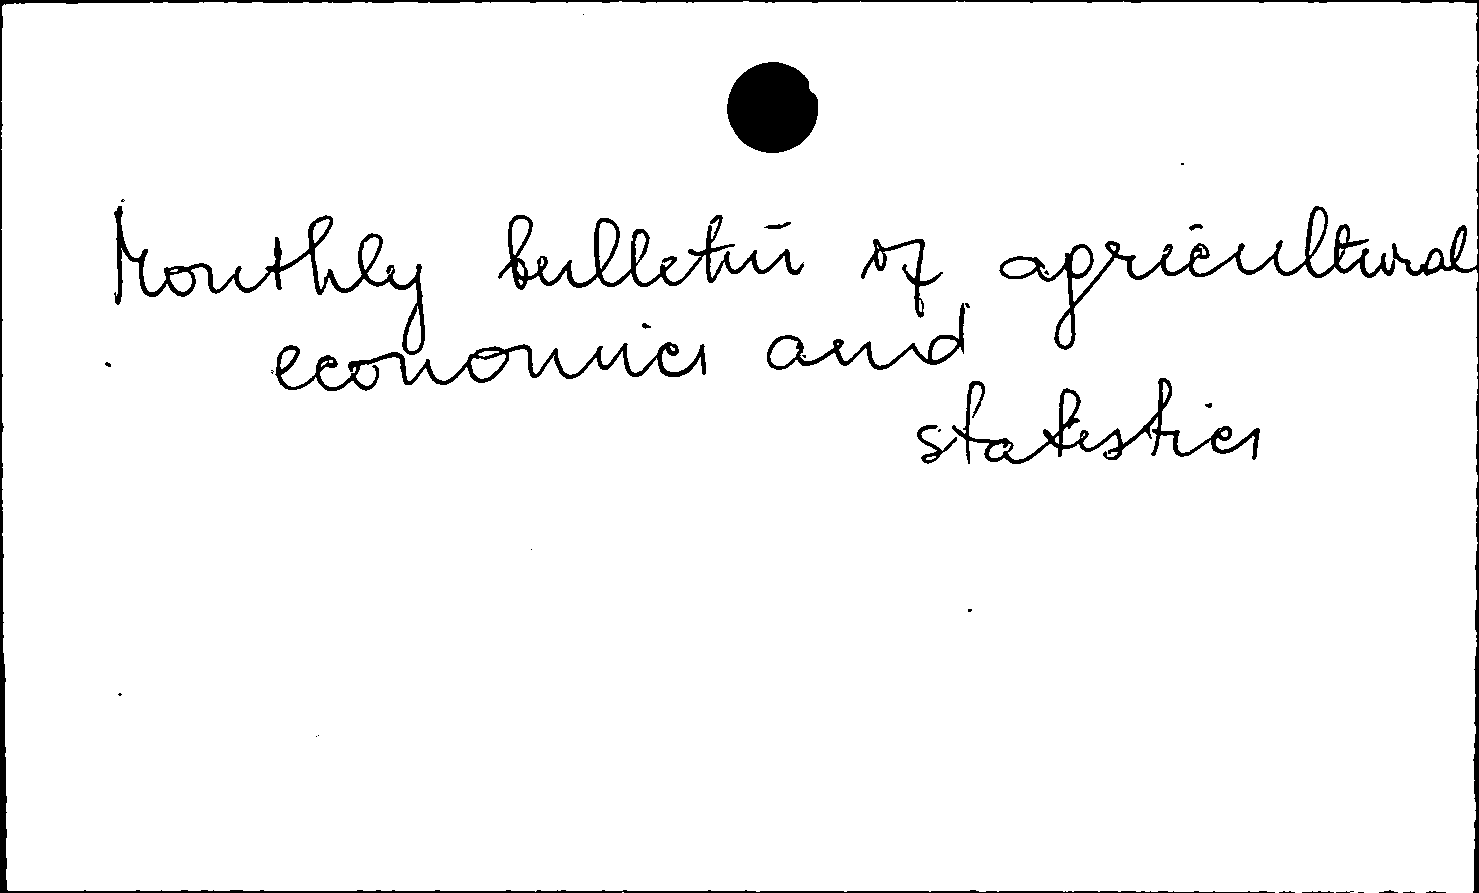 Monthly bulletin of agricultural
economics and
statistics